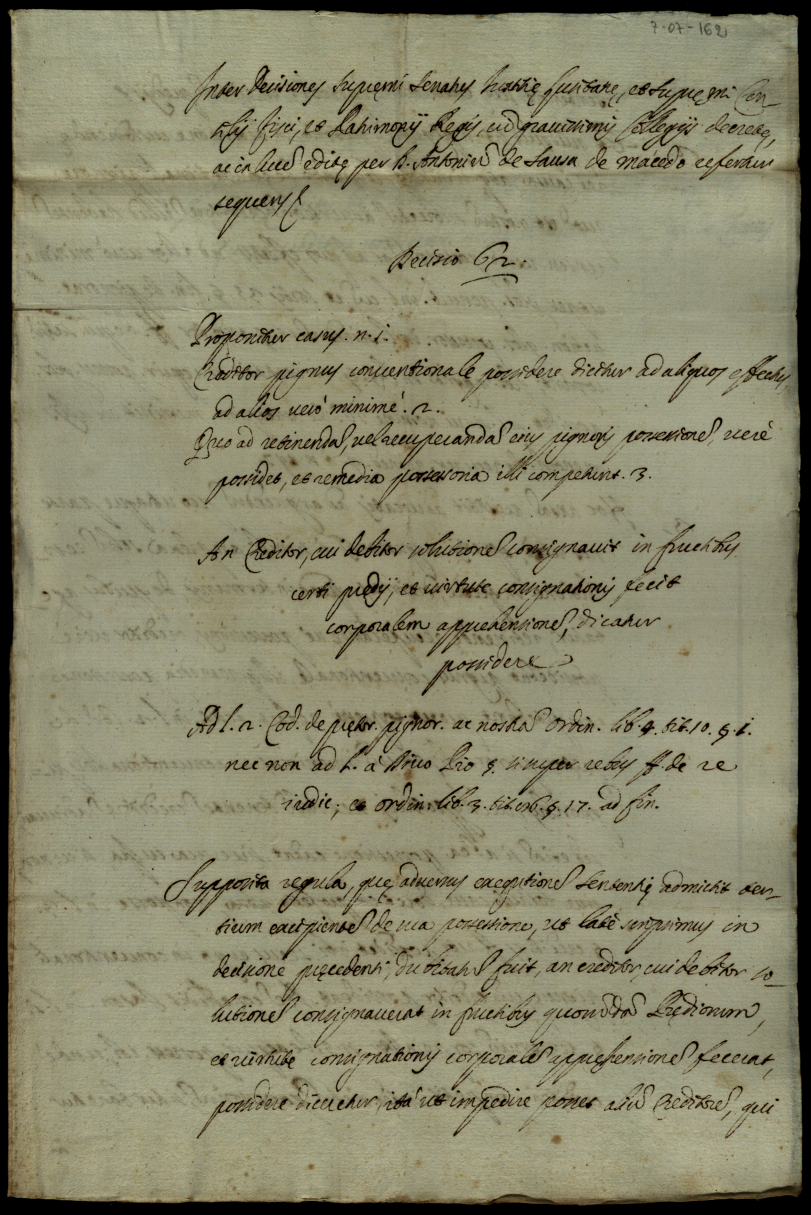 7-07-162
Inter Decisiones supremi senatus Iustitię Lusitanę, et supremi Con-
silij fisci, et Patrimonij Regij, ud gravissimis Collegijs decretę,
ac in lucē editę per D. Antoniū de Sausa de macedo refertur
sequens
Decisio 62.
Proponitur casus. n. 1.
Creditor pignus conventionale possidere dicitur ad aliquos effectus,
ad alios verò minimé. 2.
Quo ad retinendā, vel recuperandā eius pignoris possessionē, verè
possidet, et remedia possessoria illi competunt. 3.
An Creditor, cui debitor solutionē consignavit in fructibus
certi prędij, et virtute consignationis fecit
corporalem apprehensionē, dicatur
possidere
Ad l. 2. Cod. de prętor. pignor. ac nostrā ordin. lib. 4. tit. 10. §. 1.
nec non ad l. à Divo Pio §. si super rebus ff. de re
iudic; et ordin. lib. 3. tit. 86. §. 17. ad fin.
Supposita regula, quę adversus exequtionē sententię admittit ter-
tium excipientē de sua possessione, ut latè scripsimus in
decisione pręcedenti, dubitatū fuit, an creditor, cui debitor so-
lutionē consignaverat in fructibus quorundā Prędiorum,
et virtute consignationis corporalē apprehensionē fecerat,
possidere dicatur, ità ut impedire posset aliū Creditorē, qui